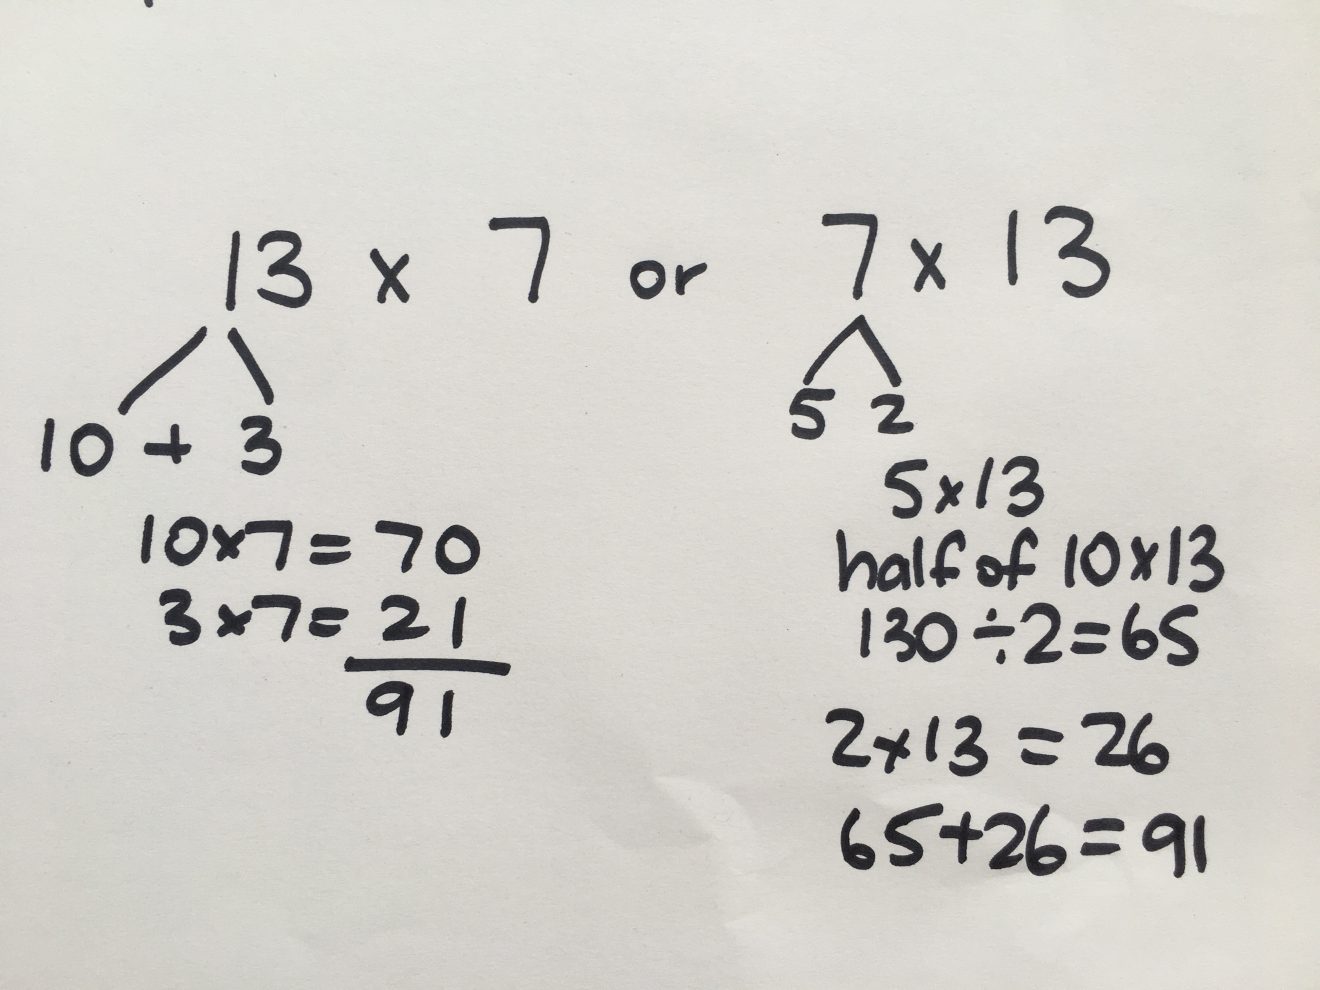 13 x 7 or 7 x 13
10 + 3
10x7=70
3x7=21
91
5 2
5x13
half of 10x13
130÷2=65
2x13=26
65+26=91